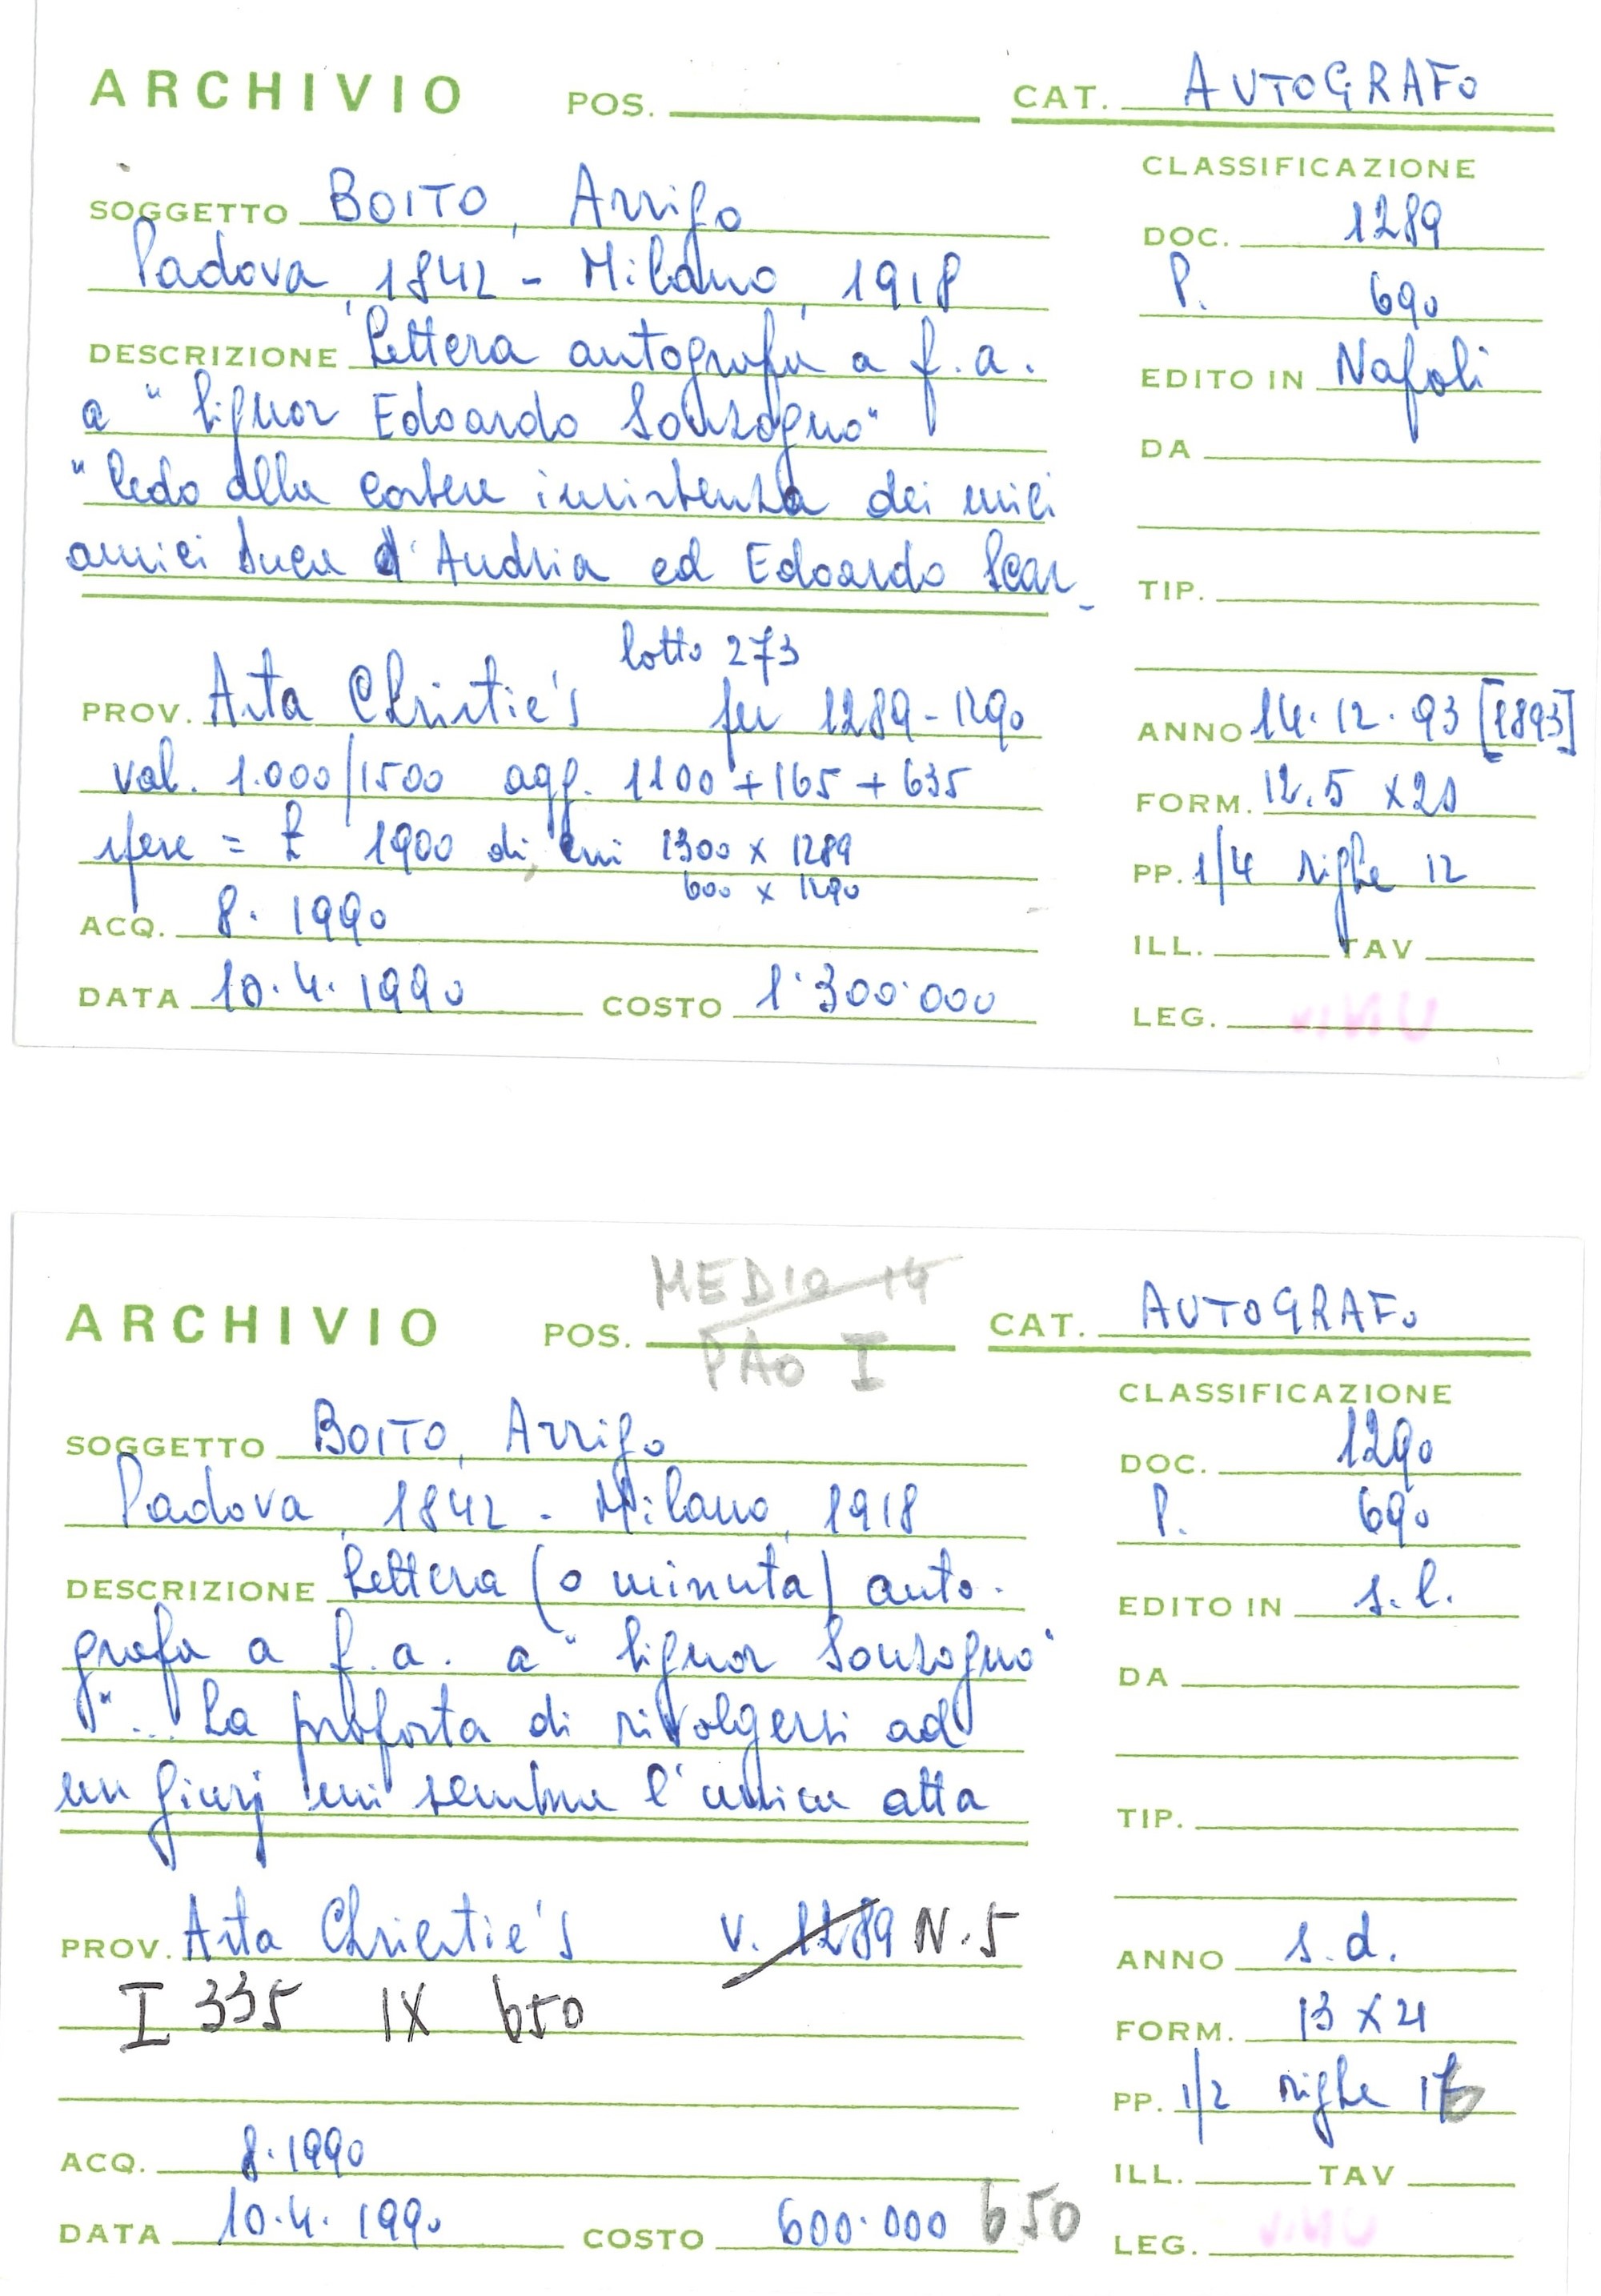 ARCHIVIO POS. CAT. AUTOGRAFO
CLASSIFICAZIONE
SOGGETTO BOITO, Arrigo
DOC. 1289
Padova, 1842 - Milano, 1918
P. 690
DESCRIZIONE Lettera autografa a f.a.
EDITO IN Napoli
a "Signor Edoardo Sonzogno"
DA
"Cedo alla cortese insistenza dei miei
amici Duca d'Andria ed Edoardo Scar-
TIP.
lotto 273
PROV. Asta Christie's per 1289-1290
ANNO 14.12.93 [1893]
val. 1.000/1500 agg. 1100 + 165 + 635
FORM. 12.5 x 20
spese = £ 1900 di cui 1300 x 1289
600 x 1290
PP. 1/4 righe 12
ACQ. 8. 1990
ILL. TAV
DATA 10.4.1990 COSTO 1.300.000
LEG.
MEDIO 14
ARCHIVIO POS. PAO I CAT. AUTOGRAFO
CLASSIFICAZIONE
SOGGETTO BOITO, Arrigo
DOC. 1290
Padova, 1842 - Milano, 1918
P. 690
DESCRIZIONE Lettera (o minuta) auto-
EDITO IN s.l.
grafa a f.a. a "Signor Sonzogno"
DA
"... La proposta di rivolgersi ad
un giurj mi sembra l'unica atta
TIP.
PROV. Asta Christie's V. 1289 N.5
ANNO s.d.
I 335 IX 650
FORM. 13 x 21
PP. 1/2 righe 16
ACQ. 8.1990
ILL. TAV
DATA 10.4.1990 COSTO 600.000 650
LEG.